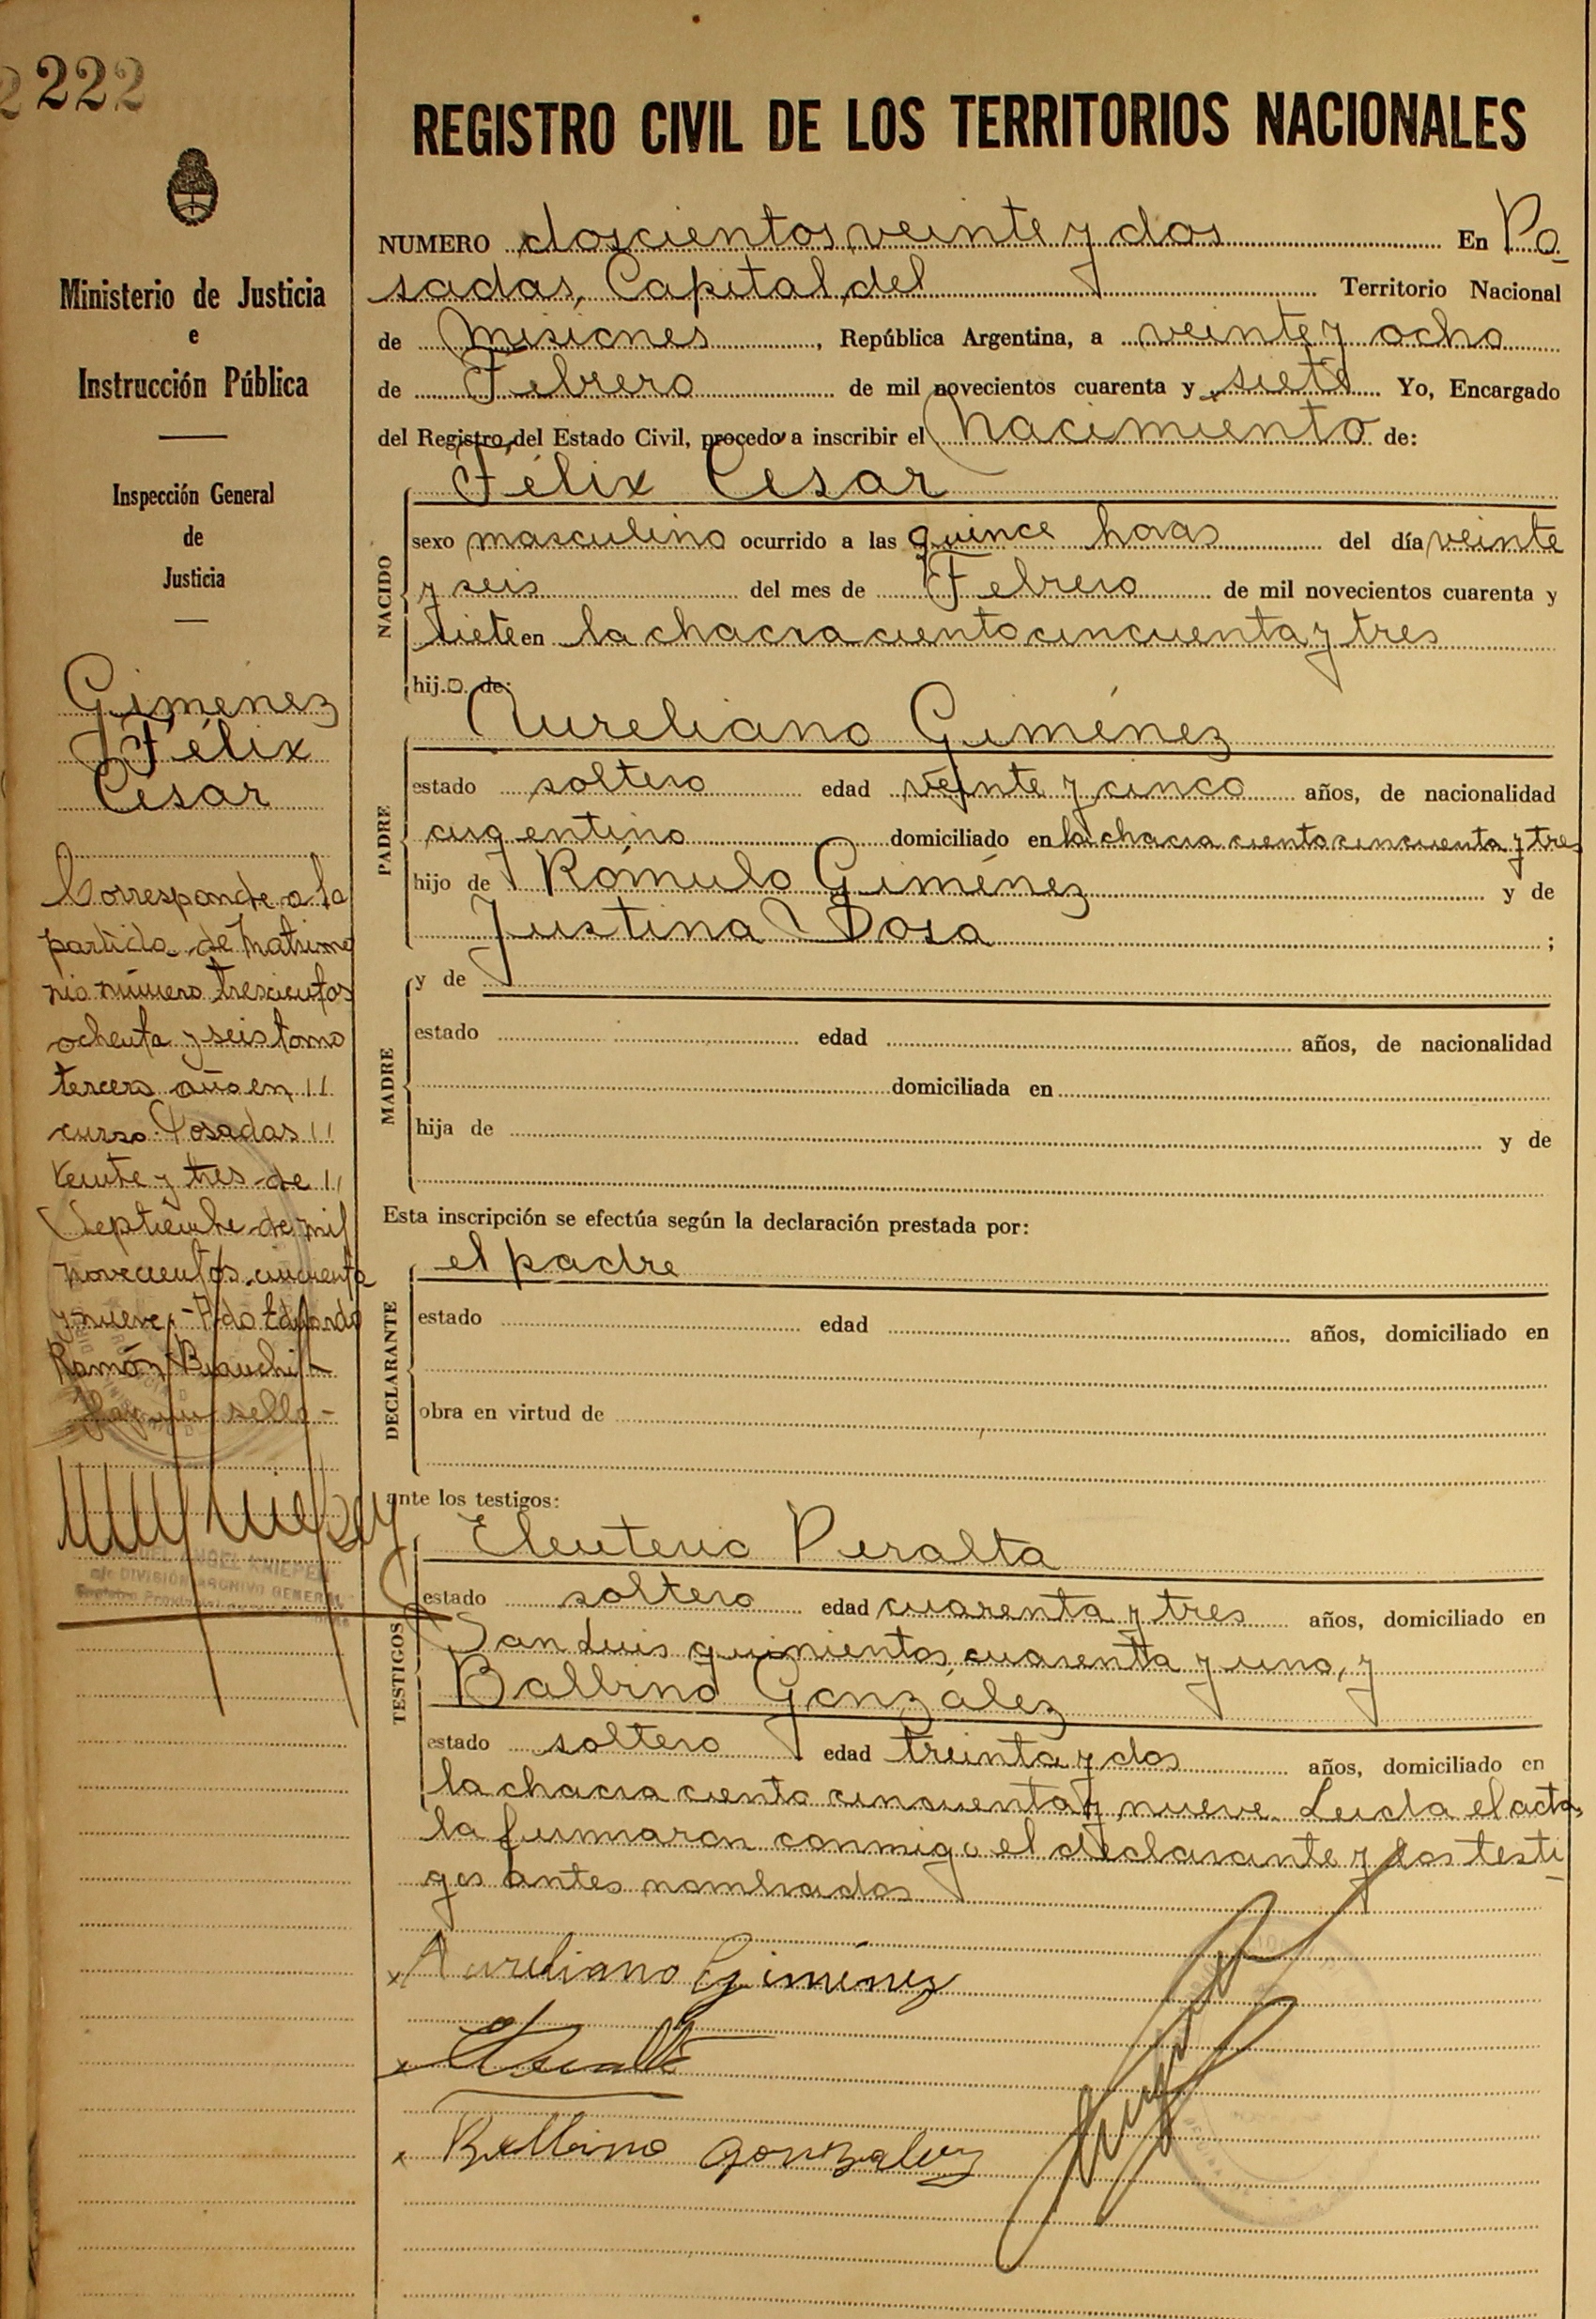 222
Ministerio de Justicia
e
Instrucción Pública
Inspección General
de
Justicia
Giménez
Félix
Cesar
Corresponde a la
partida de Matrimo
nio número trescientos
ochenta y seis tomo
tercero año en
curso. Posadas
Veinte y tres de
Septiembre de mil
novecientos cincuenta
y nueve. - Fdo Eduardo
Ramón Bianchi -
Hay un sello -
DIVISION ARCHIVO GENERAL
REGISTRO CIVIL DE LOS TERRITORIOS NACIONALES
NUMERO doscientos veinte y dos En Po
sadas, Capital del Territorio Nacional
de Misiones, República Argentina, a veinte y ocho
de Febrero de mil novecientos cuarenta y siete Yo, Encargado
del Registro del Estado Civil, procedo a inscribir el Nacimiento de:
Félix Cesar
NACIDO
sexo masculino ocurrido a las quince horas del día veinte
y seis del mes de Febrero de mil novecientos cuarenta y
siete en la chacra ciento cincuenta y tres
hijo de:
Aureliano Giménez
PADRE
estado soltero edad veinte y cinco años, de nacionalidad
argentino domiciliado en la chacra ciento cincuenta y tres
hijo de Rómulo Giménez y de
Justina Sosa ;
y de
MADRE
estado edad años, de nacionalidad
domiciliada en
hija de y de
Esta inscripción se efectúa según la declaración prestada por:
el padre
DECLARANTE
estado edad años, domiciliado en
obra en virtud de
ante los testigos:
Eleuterio Peralta
TESTIGOS
estado soltero edad cuarenta y tres años, domiciliado en
San Luis quinientos cuarenta y uno, y
Balbino González
estado soltero edad treinta y dos años, domiciliado en
la chacra ciento cincuenta y nueve. Leida el acta,
la firmaron conmigo el declarante y los testi
gos antes nombrados.
Aureliano Giménez
Balbino Gonzalez